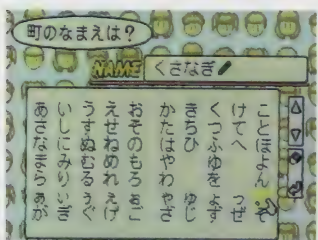 町のなまえは?
NAME
くさなぎ
ことほよん
けてへ っぜ
くつふゆをょず
きちひ ゅじ
かたはやわゃざ
おそのもろぉご
えせねめれぇげ
うすぬむるぅぐ
いしにみりぃぎ
あさなまらぁが